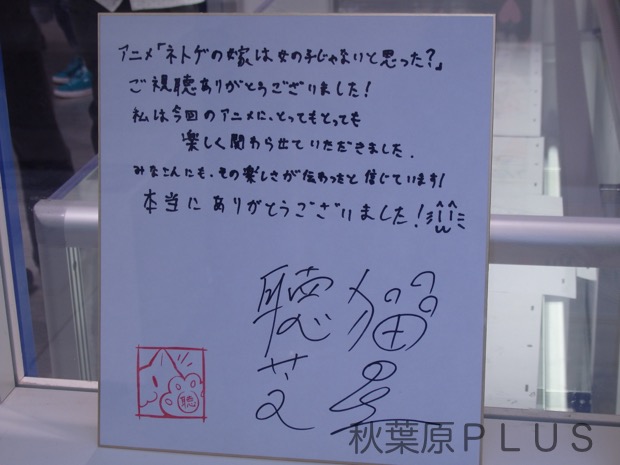 アニメ「ネトゲの嫁は女の子じゃないと思った?」
ご視聴ありがとうございました!
私は今回のアニメに、とってもとっても
楽しく関わらせていただきました.
みなさんにも、その楽しさが伝わったと信じています!
本当にありがとうございました!
聴猫
芝居
聴
秋葉原PLUS